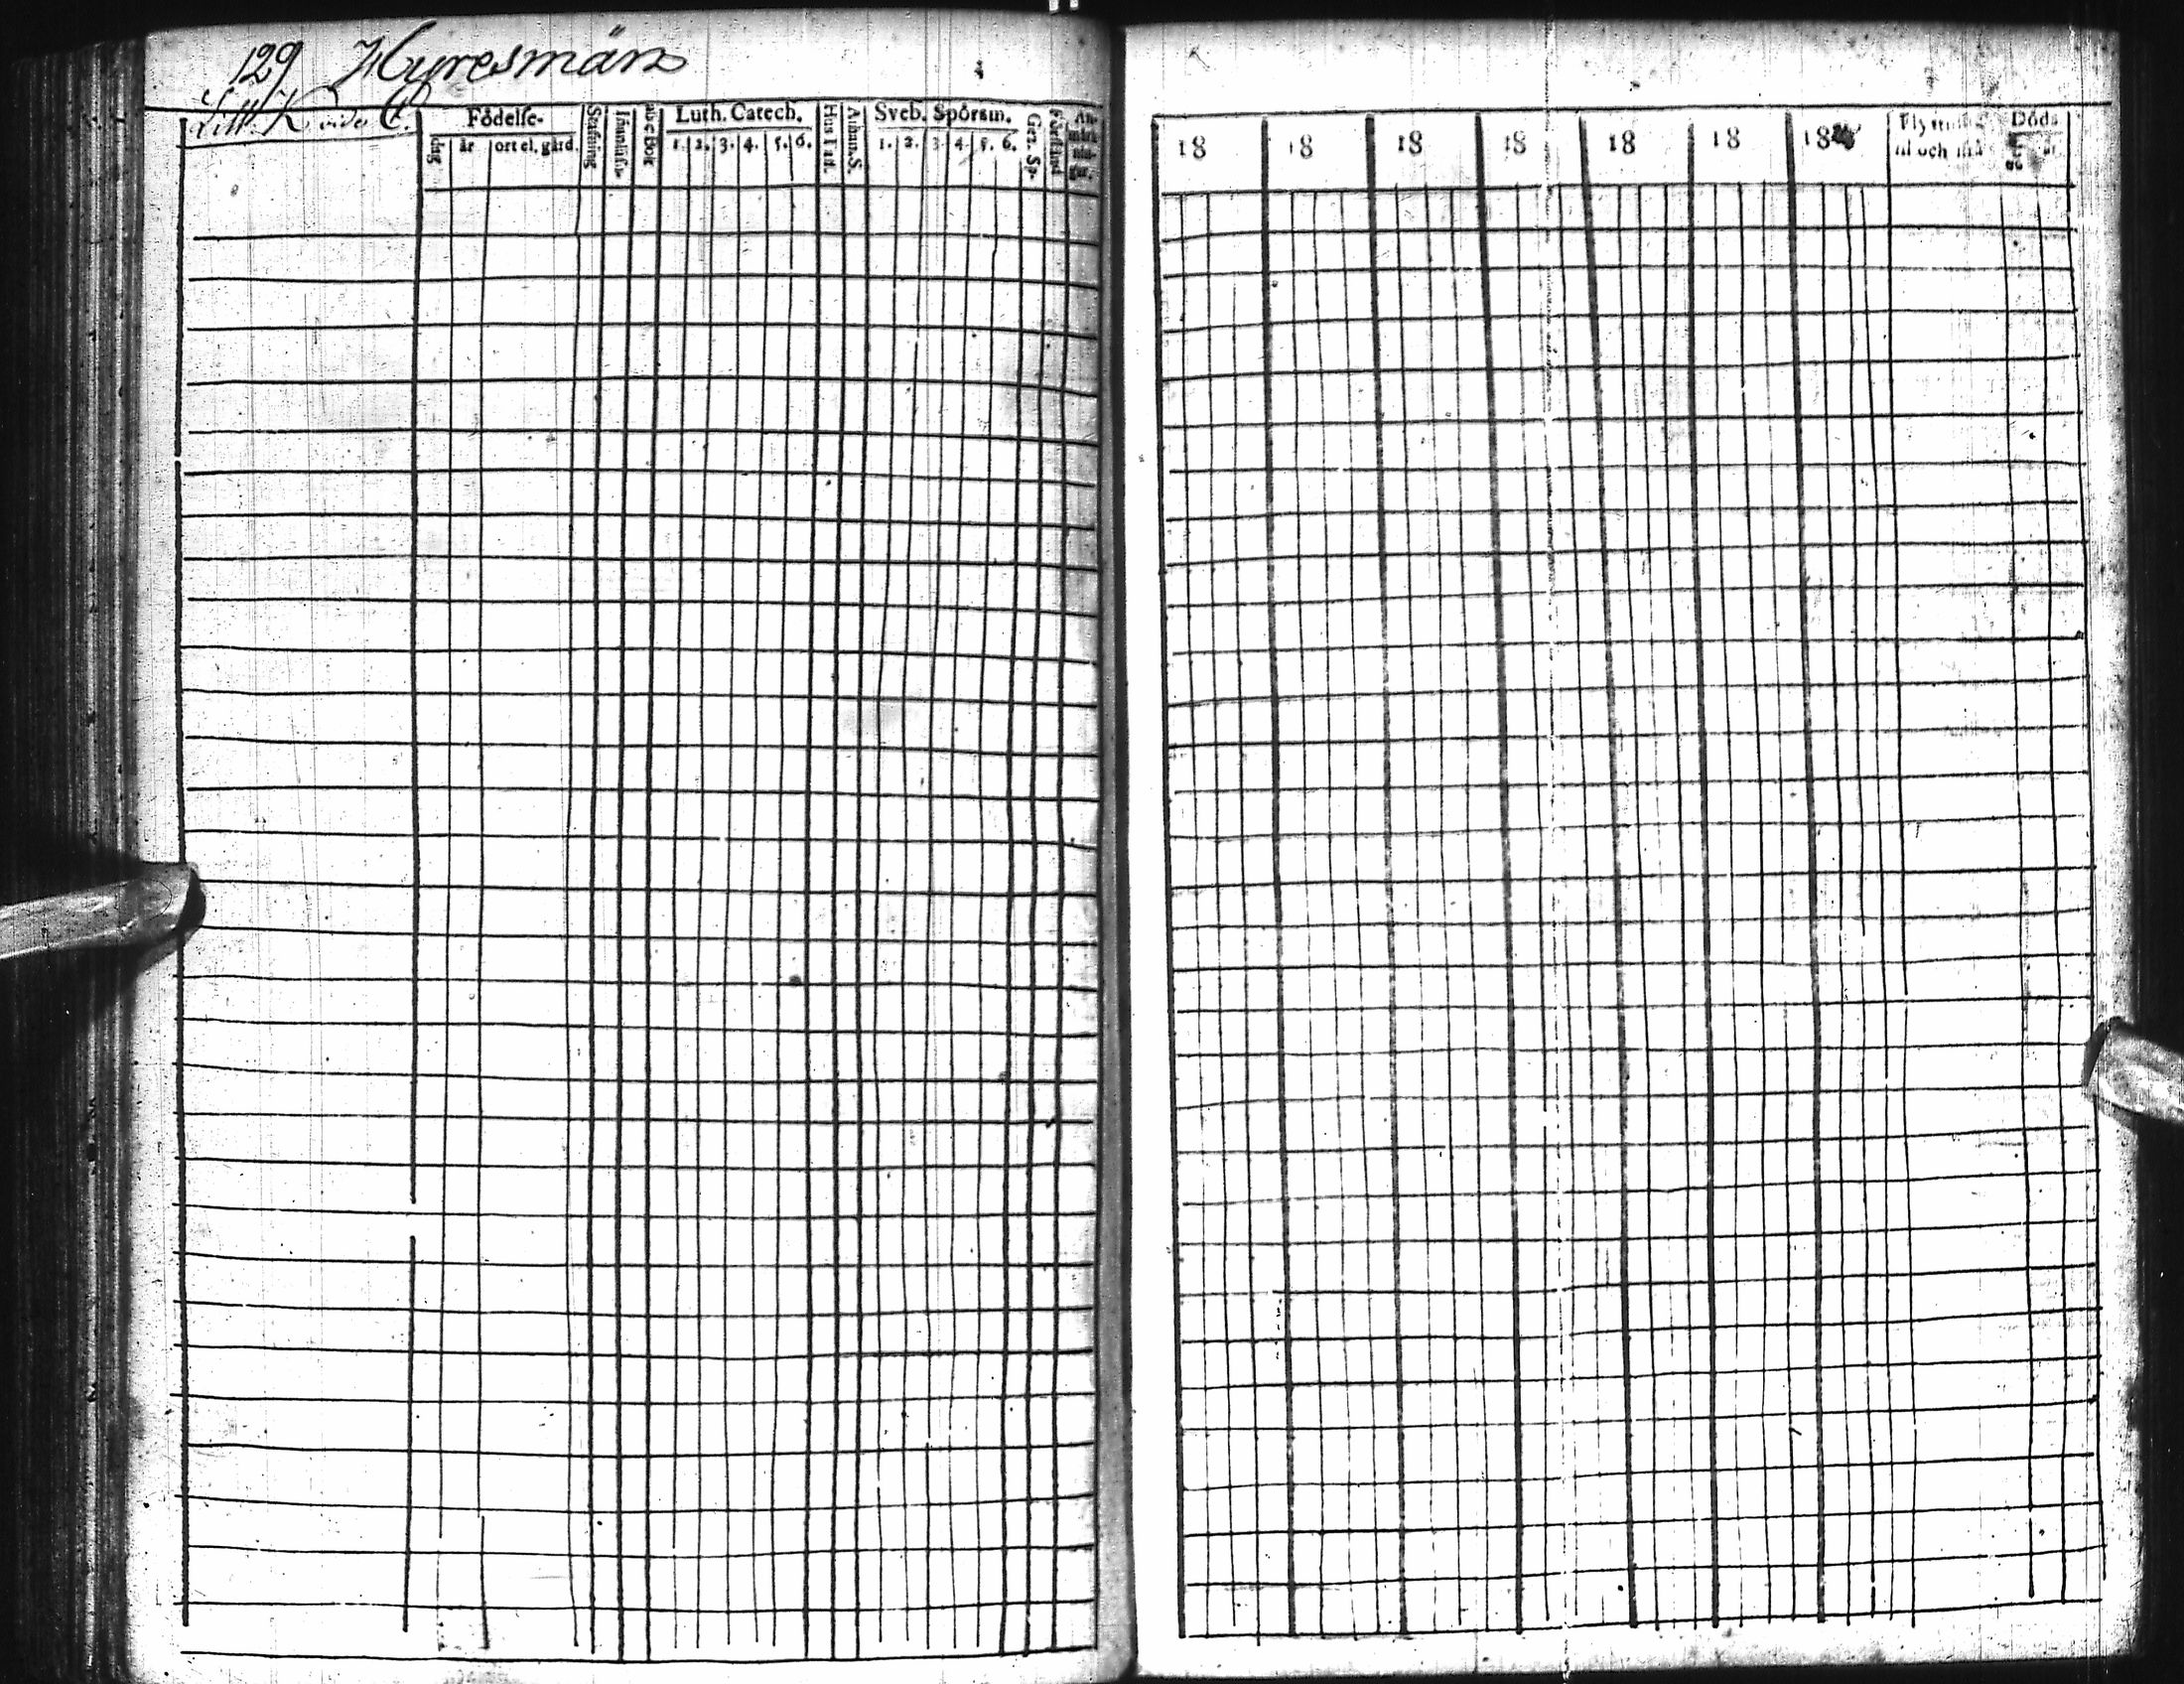 129 Hyresmän
Litt. K vide C.
Födelse-
dag år ort el. gård.
Stafning
abc Bok
Luth. Catech.
1. 2. 3. 4. 5. 6.
Hus Taf.
Athan. S.
Sveb. Spörsm.
1. 2. 3. 4. 5. 6.
Ger. Sp.
Förstånd
An-
märk-
nin-
gar.
18 18 18 18 18 18 18
Flyttning
til och ifrå
Döds
år